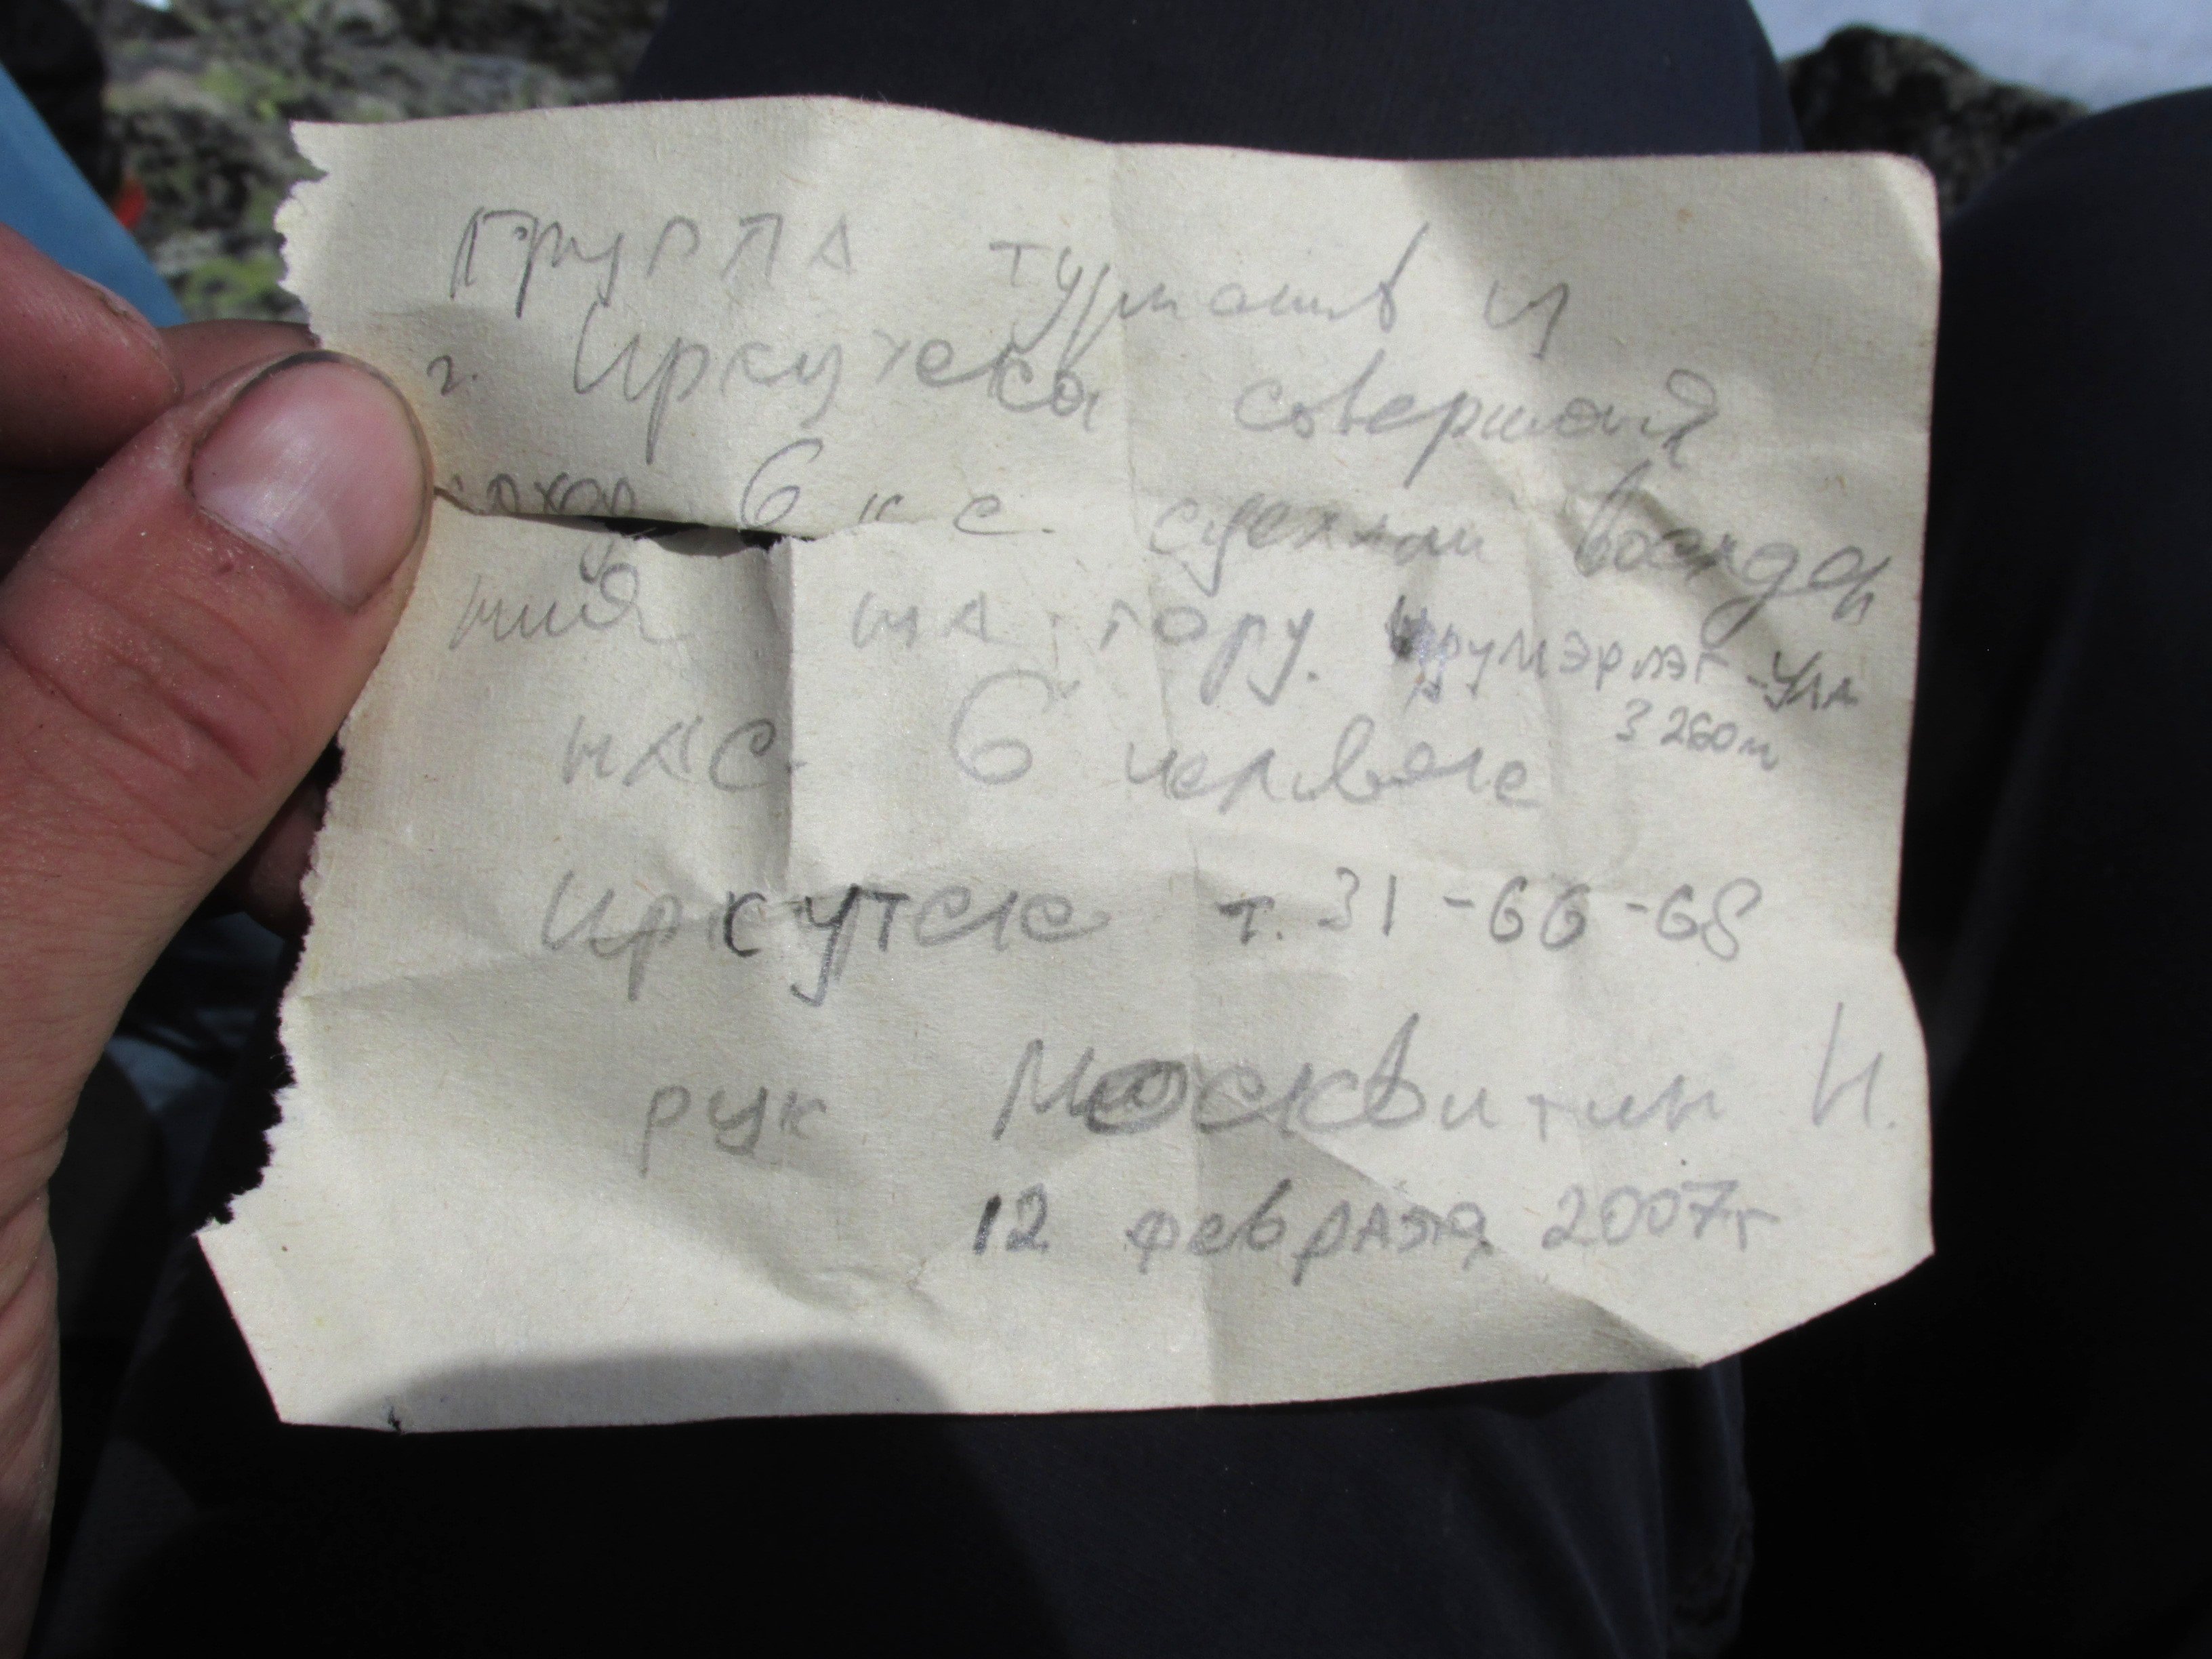 группа туристов и
г. Иркутска совершая
поход 6 к с. сделали восхож
ния на гору. Урумэрлэг-Ула
3260м
нас 6 человек
Иркутск т. 31-66-68
рук Москвитин Н.
12 февраля 2007г